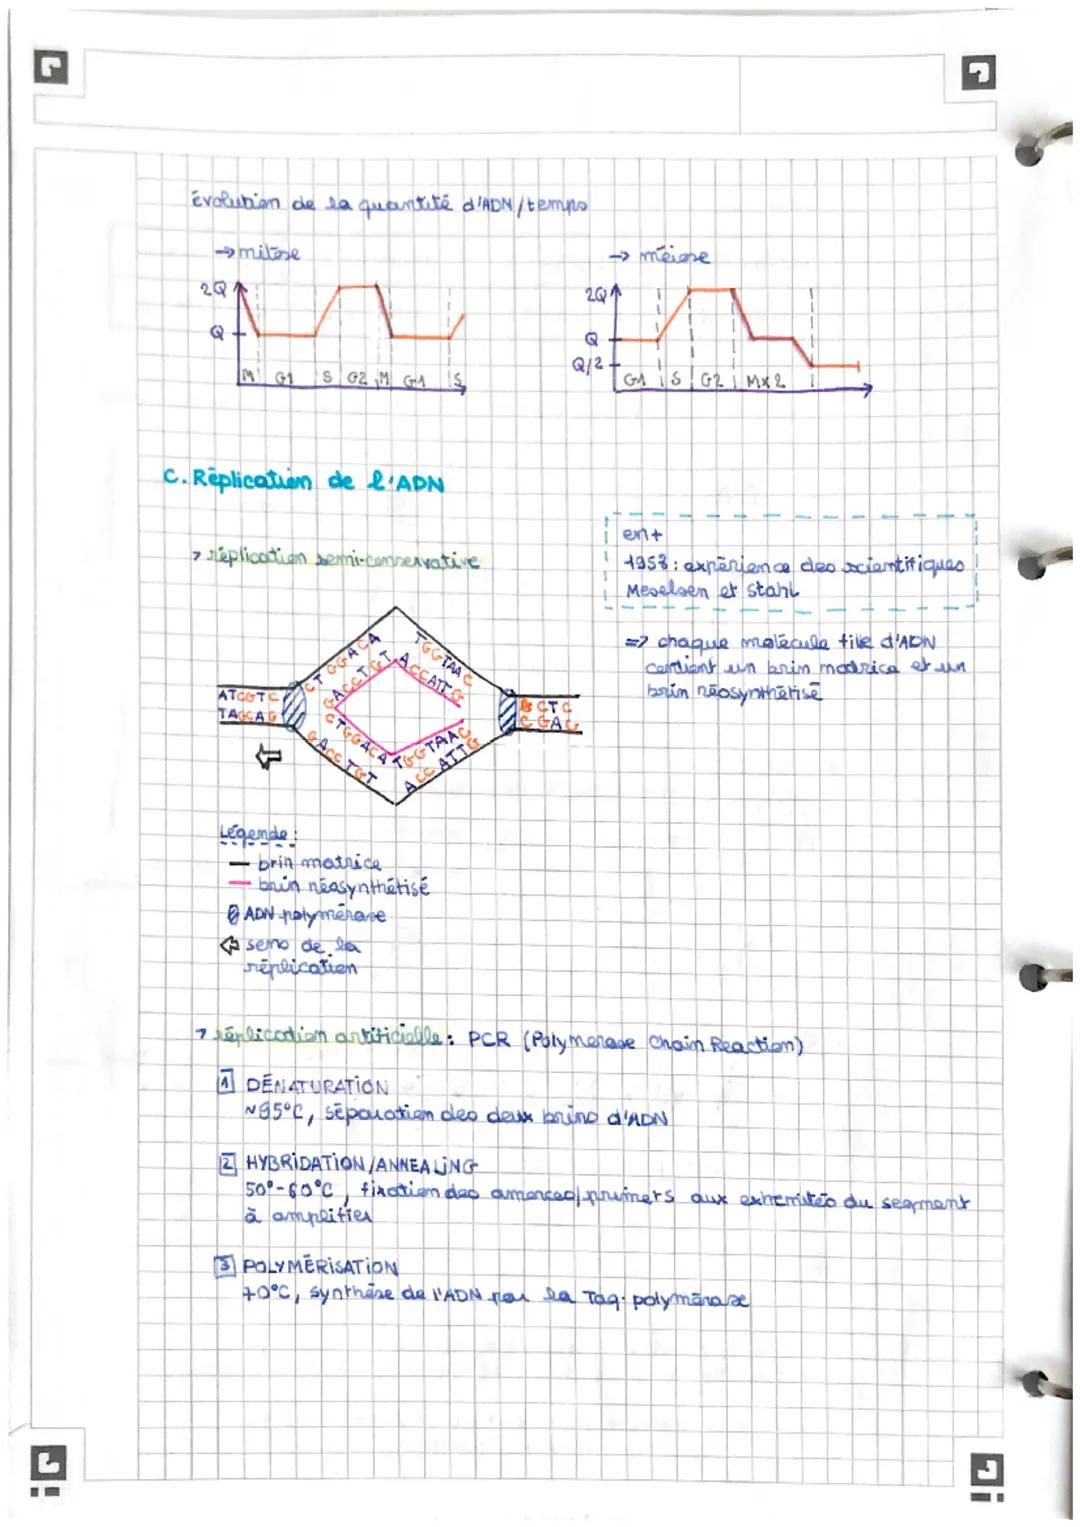 évolution de la quantité d'ADN/temps
→ mitose
→ méiose
2Q
Q
M G1 S G2 M G1 S
2Q
Q
Q/2
G1 S G2 M×2
C. Réplication de l'ADN
en +
1958 : expérience des scientifiques
Meselsen et Stahl
> réplication semi-conservative
=> chaque molécule fille d'ADN
contient un brin matrice et un
brin néosynthétisé
CT GGACA
TGGTAAC
GACCTGT
ACCATTG
ATCGTC
TAGCAG
CTC
CGAG
CTGGACA
TGGTAAC
GACCTGT
ACCATTG
Légende :
brin matrice
brin néosynthétisé
ADN polymérase
sens de la
réplication
> réplication artificielle : PCR (Polymerase Chain Reaction)
1 DÉNATURATION
~95°C, séparation des deux brins d'ADN
2 HYBRIDATION/ANNEALING
50°-60°C, fixation des amorces/primers aux extremités du segment
à amplifier
3 POLYMÉRISATION
70°C, synthèse de l'ADN par la Taq polymérase